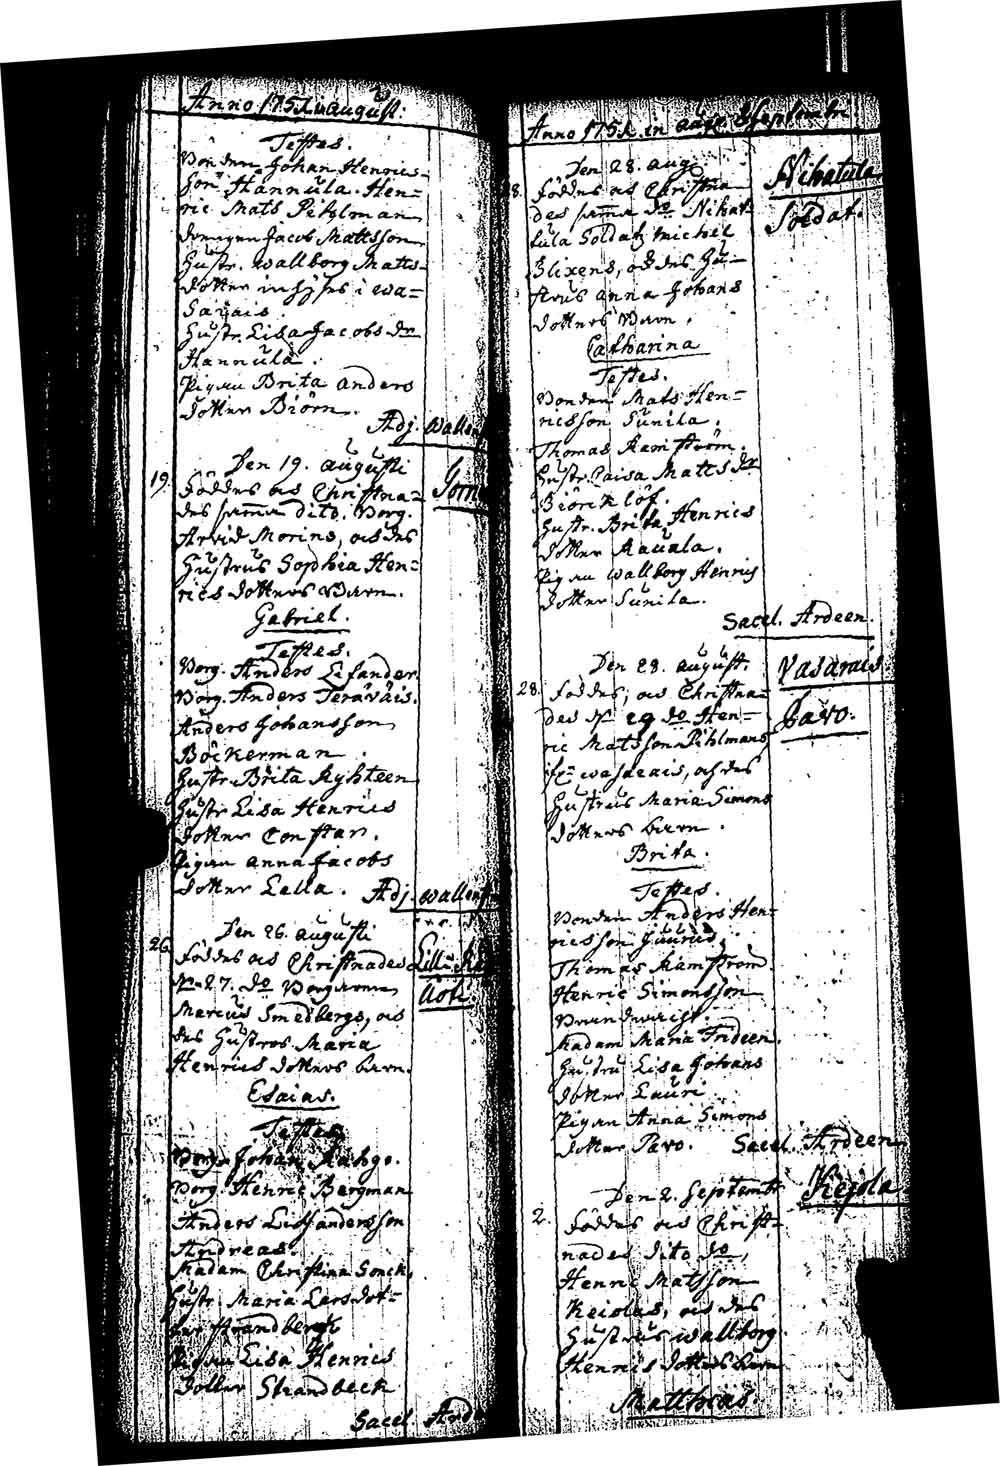 Anno 1752 in august.
Testes.
Bonden Johan Henrics-
son Hannula. Hen-
ric Mats Pihlman
Drengen Jacob Mattsson
Hustr. Wallborg Matts-
dotter inhyses i Wa-
sarais.
Hustr. Lisa Jacobs dr
Hannula.
Pigan Brita Anders
dotter Biörn.
Adj. Wallen
Den 19. augusti
19. Föddes ock Christna-
des samma dito. Borg.
Arvid Morins, ock des
Hustrus Sophia Hen-
rics dotters Barn.
Gabriel.
Testes.
Borg. Anders Lefander
Borg. Anders Teräväis.
Anders Johansson
Böckerman.
Hustr. Brita Kyhteen
Hustr Lisa Henrics
dotter Constar.
Pigan Anna Jacobs
dotter Lella.
Adj. Wallen
Den 26. augusti
26. Föddes ock Christnades
Lill
d. 27. do Borgarens
Marcus Smedbergs, ock
des Hustrus Maria
Henrics dotters barn.
Esaias.
Testes
Borg. Johan Kahgo.
Borg. Henric Bergman
Anders
Andreas.
Madam Christina Gonck.
Hustr. Maria Larsdot-
ter Strandbeck
Pigan Lisa Henrics
dotter Strandbeck
Sacel. Arde
Anno 1752 in aug. & Septembr.
Den 28. aug
Nihatula
28. Föddes ock Christna-
des samma do Nihat-
tula Soldat Michel
Soldat.
Blixens, ock des Hu-
strus Anna Johans
dotters Barn.
Catharina
Testes.
Bonden Mats Hen-
ricsson Sunila.
Thomas Ramström.
Hustr. Caisa Matts dr
Biörcklöf.
Hustr. Brita Henrics
dotter Kauala.
Pigan Wallborg Henrics
dotter Sunila.
Sacel. Ardeen.
Den 28. august.
Vasarais
28. Föddes, ock Christna-
des d. 29 do Hen-
Pavo.
ric Matssons Pihlmans
fr. Wasarais, och des
Hustrus Maria Simons
dotters barn.
Brita.
Testes.
Bonden Anders Hen-
ricsson Juurus,
Thomas Ramström.
Henric Simonsson
Madam Maria Frideen.
Hustru Lisa Johans
dotter Lauri
Pigan Anna Simons
dotter Pavo.
Sacel. Ardeen
Den 2. Septembr
Kejola
2. Föddes ock Christ-
nades dito do,
Henric Matsson
Keiolas, ock des
Hustrus Wallborg
Henrics dotters barn
Matthias.